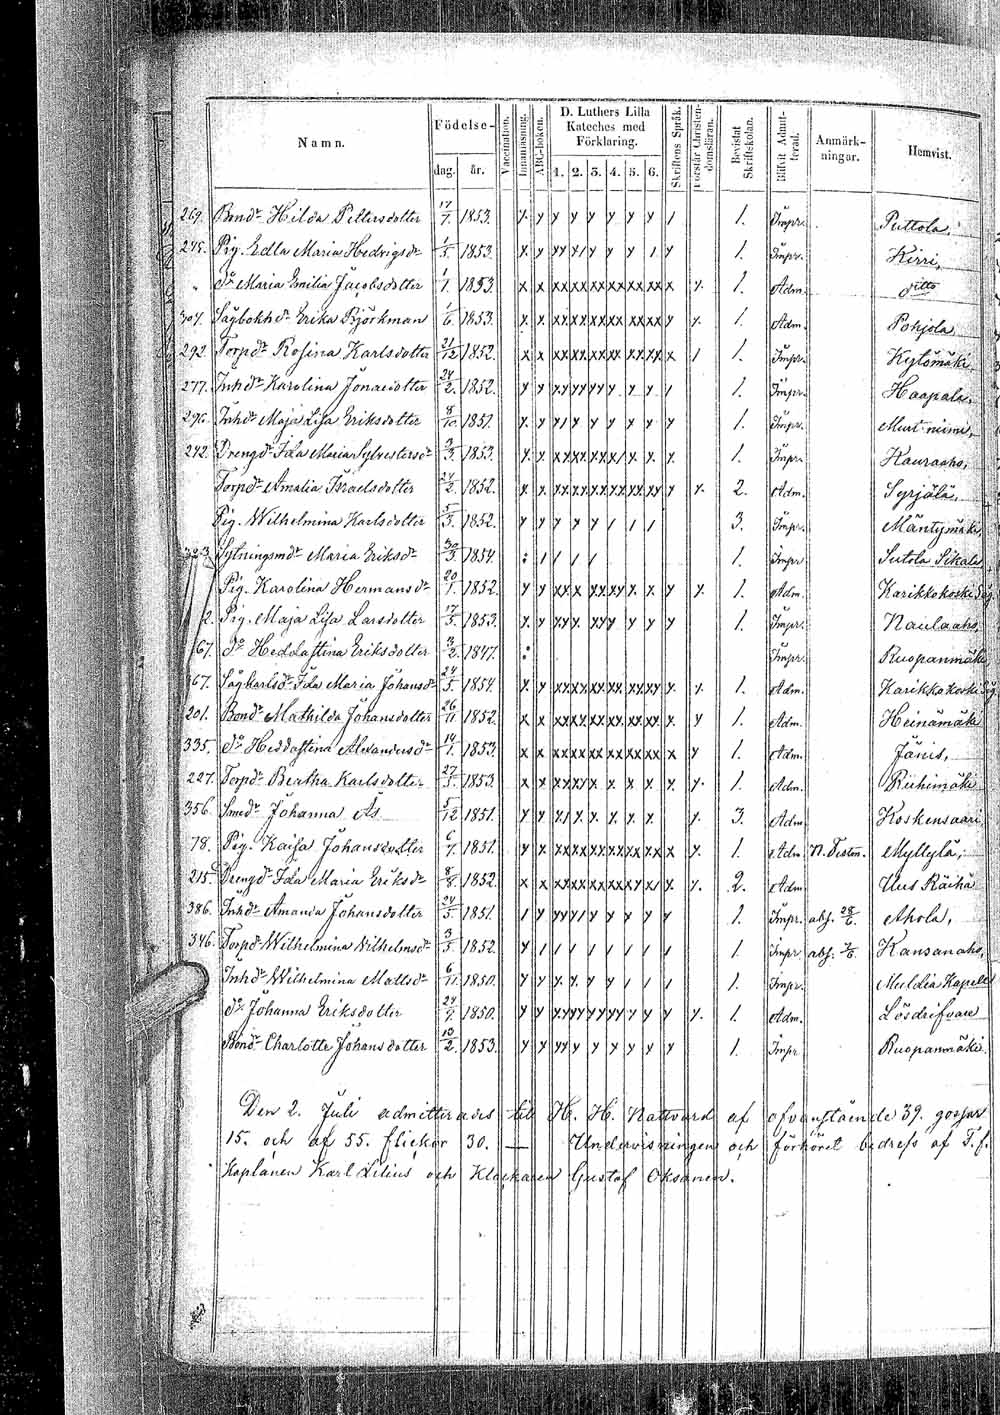 Namn. Födelse- dag. år. Vaccination. Innanläsning. ABC-boken. D. Luthers Lilla Kateches med Förklaring. 1. 2. 3. 4. 5. 6. Skriftens Språk. Förstår Christendomsläran. Bevistat Skriftskolan. Blifvit Admitterad. Anmärkningar. Hemvist.
269. Bond dr Hilda Pettersdotter 17/7. 1853. 1. Impr. Puttola,
245. Pig. Edla Maria Hedvigsdr 1/5. 1853. 1. Impr. Kirri,
" Dr Maria Emilia Jacobsdotter 1/1. 1853. 1. Adm. ditto
304. Erika Björkman 1/6. 1853. 1. Adm. Pohjola
292. Torpdr Rosina Karlsdotter 21/12 1852. 1. Impr. Kylömäki
277. Inhdr Karolina Jonasdotter 24/2. 1852. 1. Impr. Haapala,
296. Inhdr Maja Lisa Eriksdotter 8/10. 1851. 1. Impr. Murtoniemi,
242. Drengdr Ida Maria Sylvestersdr 9/3. 1853. 1. Impr. Kauraaho,
Torpdr Amalia Israelsdotter 24/2. 1852. 2. Adm. Syrjälä,
Pig. Wilhelmina Karlsdotter 5/3. 1852. 3. Impr. Mäntymäki
323. Sytningsmdr Maria Eriksdr 30/3. 1854. 1. Impr Sutola Sikala
Pig. Karolina Hermansdr 20/1. 1852. 1. Adm. Karikkokoski Såg
2. Pig. Maja Lisa Larsdotter 17/5. 1853. 1. Impr. Naulaaho,
67. Dr Heddastina Eriksdotter 3/2. 1847. Impr. Ruopanmäki
167. Sågkarlsdr Ida Maria Johansdr 24/5. 1854. 1. Adm. Karikkokoski Såg
201. Bonddr Mathilda Johansdotter 26/11. 1852. 1. Adm. Heinämäki
335. Dr Heddastina Alexandersdr 14/1. 1853. 1. Adm. Jänis,
227. Torpdr Beatha Karlsdotter 27/5. 1853 1. Adm. Riihimäki
356. Smeddr Johanna Ås 5/12 1851. 3. Adm. Koskensaari,
78. Pig. Kaisa Johansdotter 6/7. 1851. 1. Adm N. Testam. Myllylä,
215. Drengdr Ida Maria Eriksdr 8/8. 1852. 2. Adm Uus Räihä
386. Inhdr Amanda Johansdotter 24/5. 1851. 1. Impr. abs. 28/6. Ahola,
346. Torpdr Wilhelmina Wilhelmsdr 3/5 1852. 1. Impr abs. Kansanaho,
Inhdr Wilhelmina Mattsdr 6/11. 1850. 1. Impr. Muldia Kapell
Dr Johanna Eriksdotter 24/7. 1850. 1. Adm. Lösdrifvare
Bonddr Charlotte Johansdotter 10/2. 1853. 1. Impr Ruopanmäki
Den 2. Juli admitterades till H. H. Nattvard af ofvanstående 39. gossar
15. och af 55. flickor 30. — Undervisningen och förhöret bedrefs af T. f.
Kaplanen Karl Lilius och Klockaren Gustaf Oksanen.